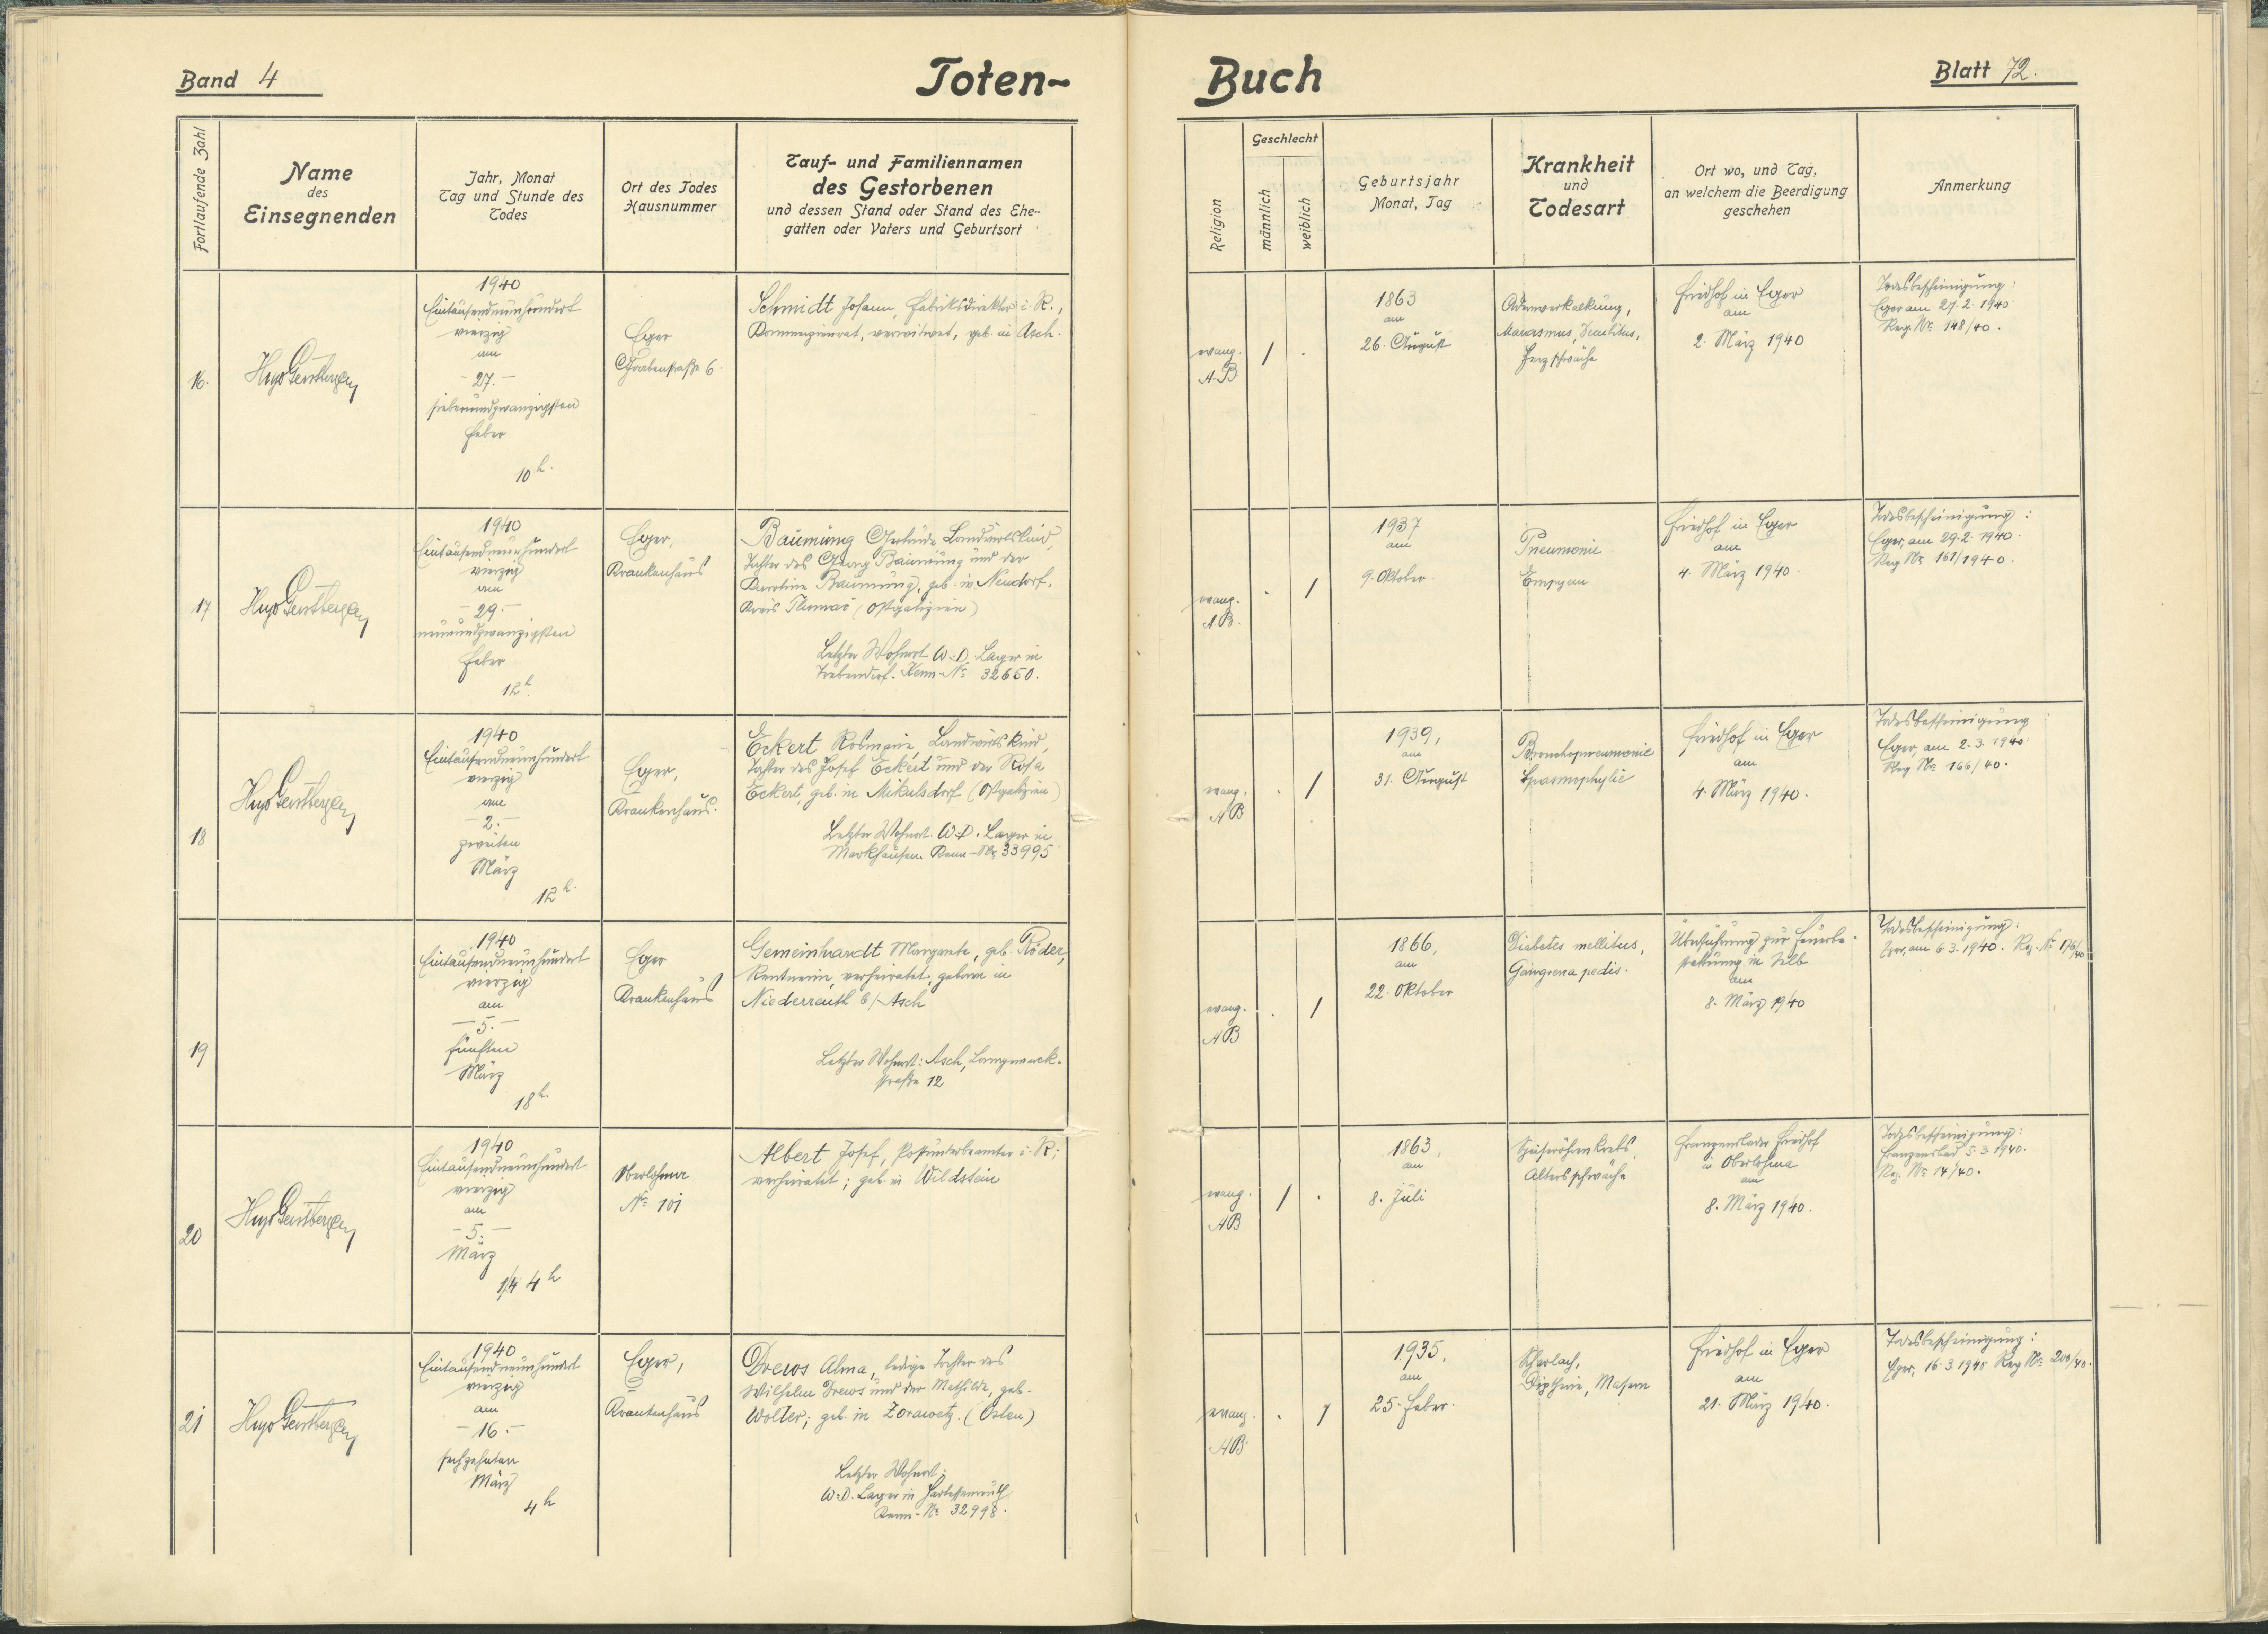 Band 4
Toten-
Buch
Blatt 72.
Fortlaufende Zahl
Name
des
Einsegnenden
Jahr, Monat
Tag und Stunde des
Todes
Ort des Todes
Hausnummer
Tauf- und Familiennamen
des Gestorbenen
und dessen Stand oder Stand des Ehe-
gatten oder Vaters und Geburtsort
Religion
Geschlecht
männlich
weiblich
Geburtsjahr
Monat, Tag
Krankheit
und
Todesart
Ort wo, und Tag,
an welchem die Beerdigung
geschehen
Anmerkung
16.
Hugo Gerstberger
1940
Eintausendneunhundert
vierzig
am
- 27. -
siebenundzwanzigsten
Feber
10 h.
Eger
Grabenstraße 6.
Schmidt Johann, Fabriksdirektor i. R.,
Kommerzienrat, verwitwet, geb. in Asch.
evang.
A.B.
/ .
1863
am
26. August
Adernverkalkung,
Marasmus, Decubitus,
Herzschwäche
Friedhof in Eger
am
2. März 1940
Todesbescheinigung:
Eger am 27.2.1940
Reg. No 148/40.
17
Hugo Gerstberger
1940
Eintausendneunhundert
vierzig
am
- 29. -
neunundzwanzigsten
Feber
12 h.
Eger,
Krankenhaus
Baumung Gertrude Landwirtskind,
Tochter des Georg Baumung und der
Karoline Baumung, geb. in Neudorf,
Kreis Tlumac (Ostgalizien)
Letzter Wohnort W.D. Lager in
Trebendorf. Kenn-No 32650.
evang.
A.B.
. /
1937
am
9. Oktober.
Pneumonie
Empyem
Friedhof in Eger
am
4. März 1940.
Todesbescheinigung:
Eger, am 29.2.1940.
Reg No 161/1940.
18
Hugo Gerstberger
1940
Eintausendneunhundert
vierzig
am
- 2. -
zweiten
März
12 h.
Eger,
Krankenhaus.
Eckert Rosmarie, Landwirtskind,
Tochter des Josef Eckert und der Rosa
Eckert, geb. in Mikulsdorf (Ostgalizien)
Letzter Wohnort. W.D. Lager in
Markhausen. Kenn-No 33995
evang.
AB
. /
1939,
am
31. August
Bronchopneumonie
Spasmophylie
Friedhof in Eger
am
4. März 1940.
Todesbescheinigung
Eger, am 2.3.1940
Reg No 166/40.
19
1940
Eintausendneunhundert
vierzig
am
- 5. -
fünften
März
18 h.
Eger
Krankenhaus
Gemeinhardt Margarete, geb. Röder,
Rentnerin, verheiratet, geboren in
Niederreuth b/Asch
Letzter Wohnort: Asch, Langemarck-
straße 12
evang.
AB
. /
1866,
am
22. Oktober
Diabetes mellitus,
Gangrena pedis.
Überführung zur Feuerbe-
stattung in Selb
am
8. März 1940
Todesbescheinigung:
Eger, am 6.3.1940. Reg. No 176/40
20
Hugo Gerstberger
1940
Eintausendneunhundert
vierzig
am
- 5. -
März
1/4 4 h
Oberlohma
No 101
Albert Josef, Postunterbeamter i. R.;
verheiratet; geb. in Wildstein
evang.
AB
/ .
1863,
am
8. Juli
Speiseröhrenkrebs,
Altersschwäche
Franzensbader Friedhof
in Oberlohma
am
8. März 1940.
Todesbescheinigung:
Franzensbad 5.3.1940.
Reg. No 14/40.
21
Hugo Gerstberger
1940
Eintausendneunhundert
vierzig
am
- 16. -
sechzehnten
März
4 h
Eger,
Krankenhaus
Drews Alma, ledige Tochter des
Wilhelm Drews und der Mathilde, geb.
Wolter; geb. in Zorawetz. (Osten)
Letzter Wohnort:
W.D. Lager in
Kenn-No 32998.
evang.
AB
. /
1935,
am
25. Feber.
Scharlach,
Diptherie, Masern
Friedhof in Eger
am
21. März 1940.
Todesbescheinigung:
Eger, 16.3.1940 Reg No 200/40.